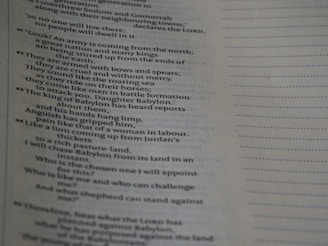 I overthrew Sodom and Gomorrah
along with their neighbouring towns,'
declares the LORD,
'so no one will live there;
no people will dwell in it.
'Look! An army is coming from the north;
a great nation and many kings
are being stirred up from the ends of
the earth.
They are armed with bows and spears;
they are cruel and without mercy.
They sound like the roaring sea
as they ride on their horses;
they come like men in battle formation
to attack you, Daughter Babylon.
The king of Babylon has heard reports
about them,
and his hands hang limp.
Anguish has gripped him,
pain like that of a woman in labour.
Like a lion coming up from Jordan's
thickets
to a rich pasture-land,
I will chase Babylon from its land in an
instant.
Who is the chosen one I will appoint
for this?
Who is like me and who can challenge
me?
And what shepherd can stand against
me?'
Therefore, hear what the LORD has
planned against Babylon,
what he has purposed against the land
of the Babylonians: